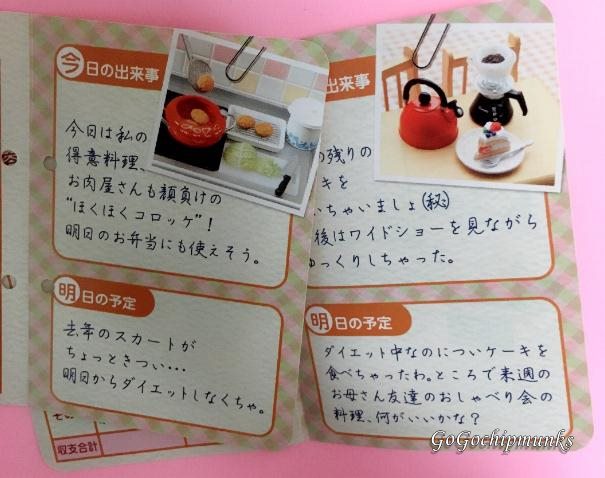 今日の出来事
今日は私の
得意料理、
お肉屋さんも顔負けの
"ほくほくコロッケ"!
明日のお弁当にも使えそう。
明日の予定
去年のスカートが
ちょっときつい…
明日からダイエットしなくちゃ。
収支合計
出来事
の残りの
キを
いちゃいましょ(秘)
後はワイドショーを見ながら
ゆっくりしちゃった。
明日の予定
ダイエット中なのについケーキを
食べちゃったわ。ところで来週の
お母さん友達のおしゃべり会の
料理、何がいいかな?
GoGochipmunks